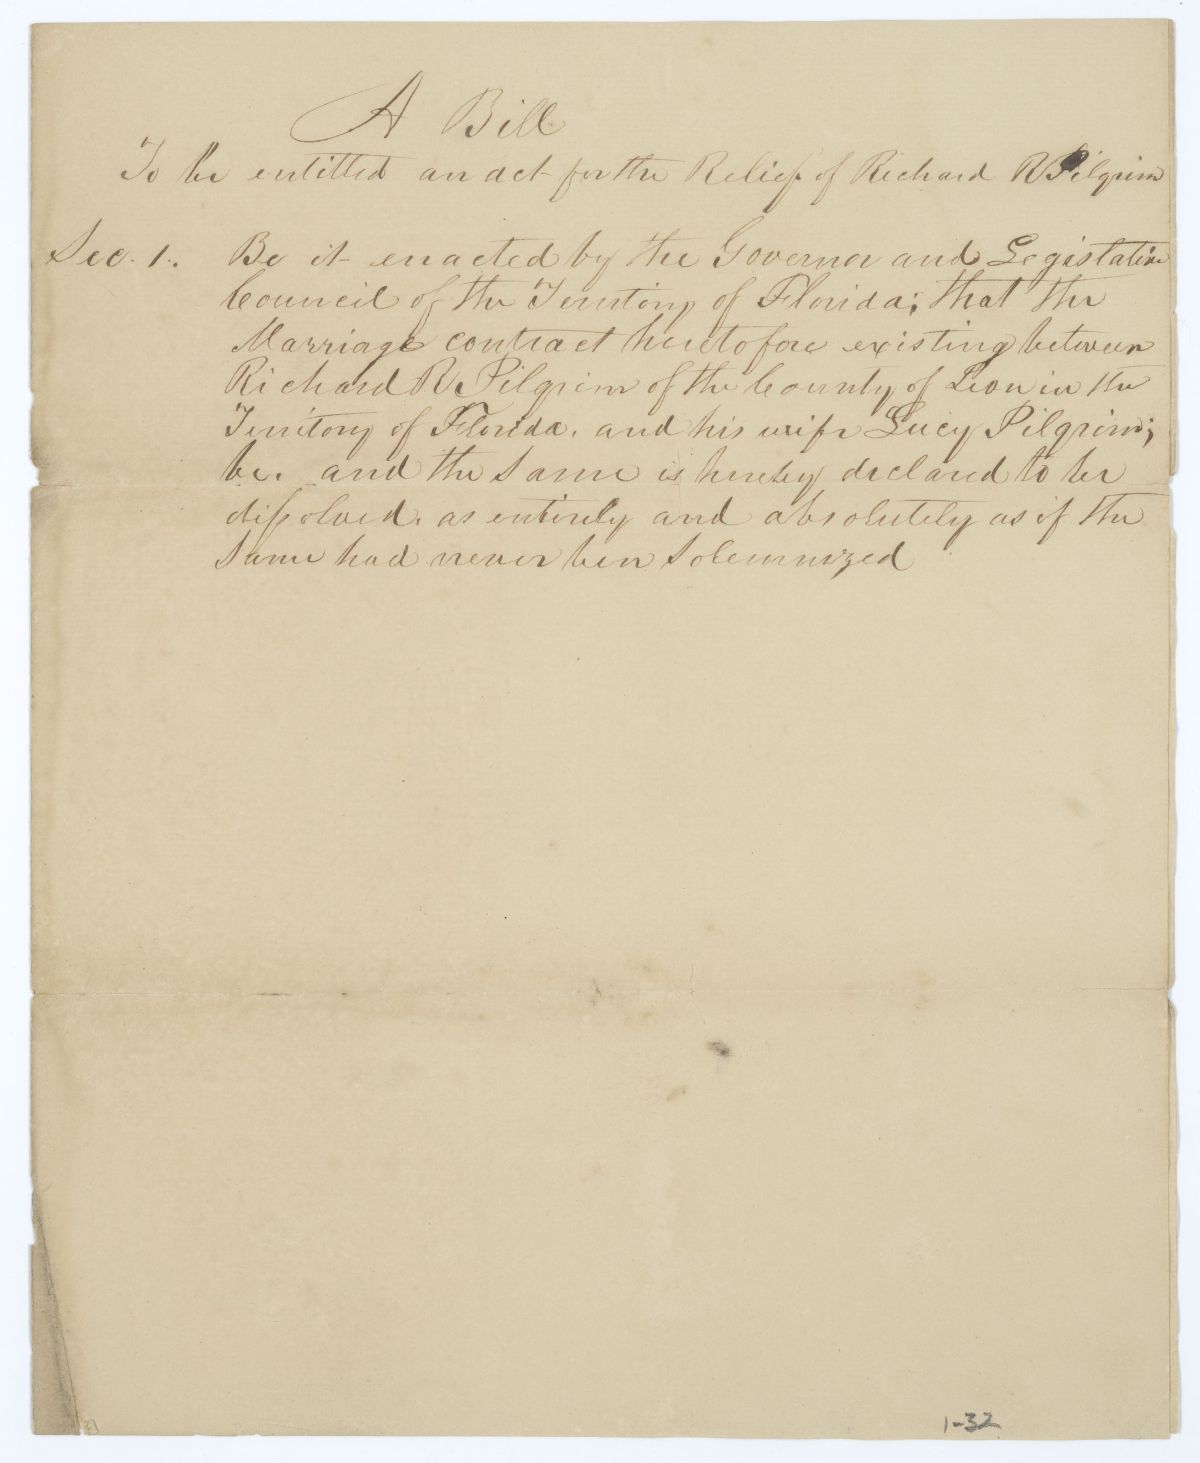 A Bill
To be entitled an act for the Relief of Richard R Pilgrim
Sec. 1. Be it enacted by the Governor and Legislative
Council of the Territory of Florida; that the
Marriage contract heretofore existing between
Richard R Pilgrim of the County of Leon in the
Territory of Florida. and his wife Lucy Pilgrim;
be. and the same is hereby declared to be
dissolved. as entirely and absolutely as if the
same had never been solemnized
1-32